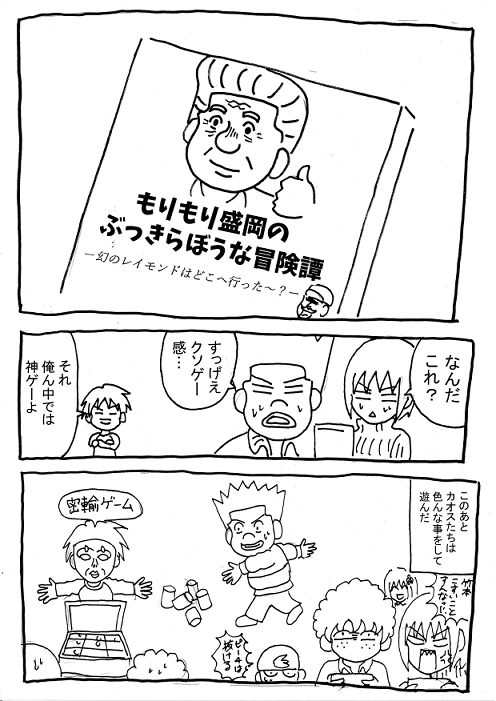 もりもり盛岡の
ぶっきらぼうな冒険譚
―幻のレイモンドはどこへ行った～？―
なんだ
これ？
すっげえ
クソゲー
感…
それ
俺ん中では
神ゲーよ
このあと
カオスたちは
色んな事をして
遊んだ
密輸ゲーム
竹本
こすいこと
すんな!!
ピーチは
抜ける